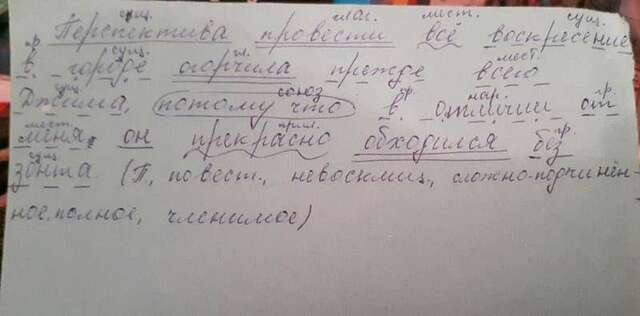 сущ. глаг. мест. сущ.
Перспектива провести всё воскресение
пр. сущ. гл. мест.
в городе огорчила прежде всего
сущ. союз пр. нар. пр.
Джима, потому что в отличии от
мест. прил. пр.
меня, он прекрасно обходился без
сущ.
зонта (П, повест., невосклиц., сложно-подчинён-
ное, полное, членимое)